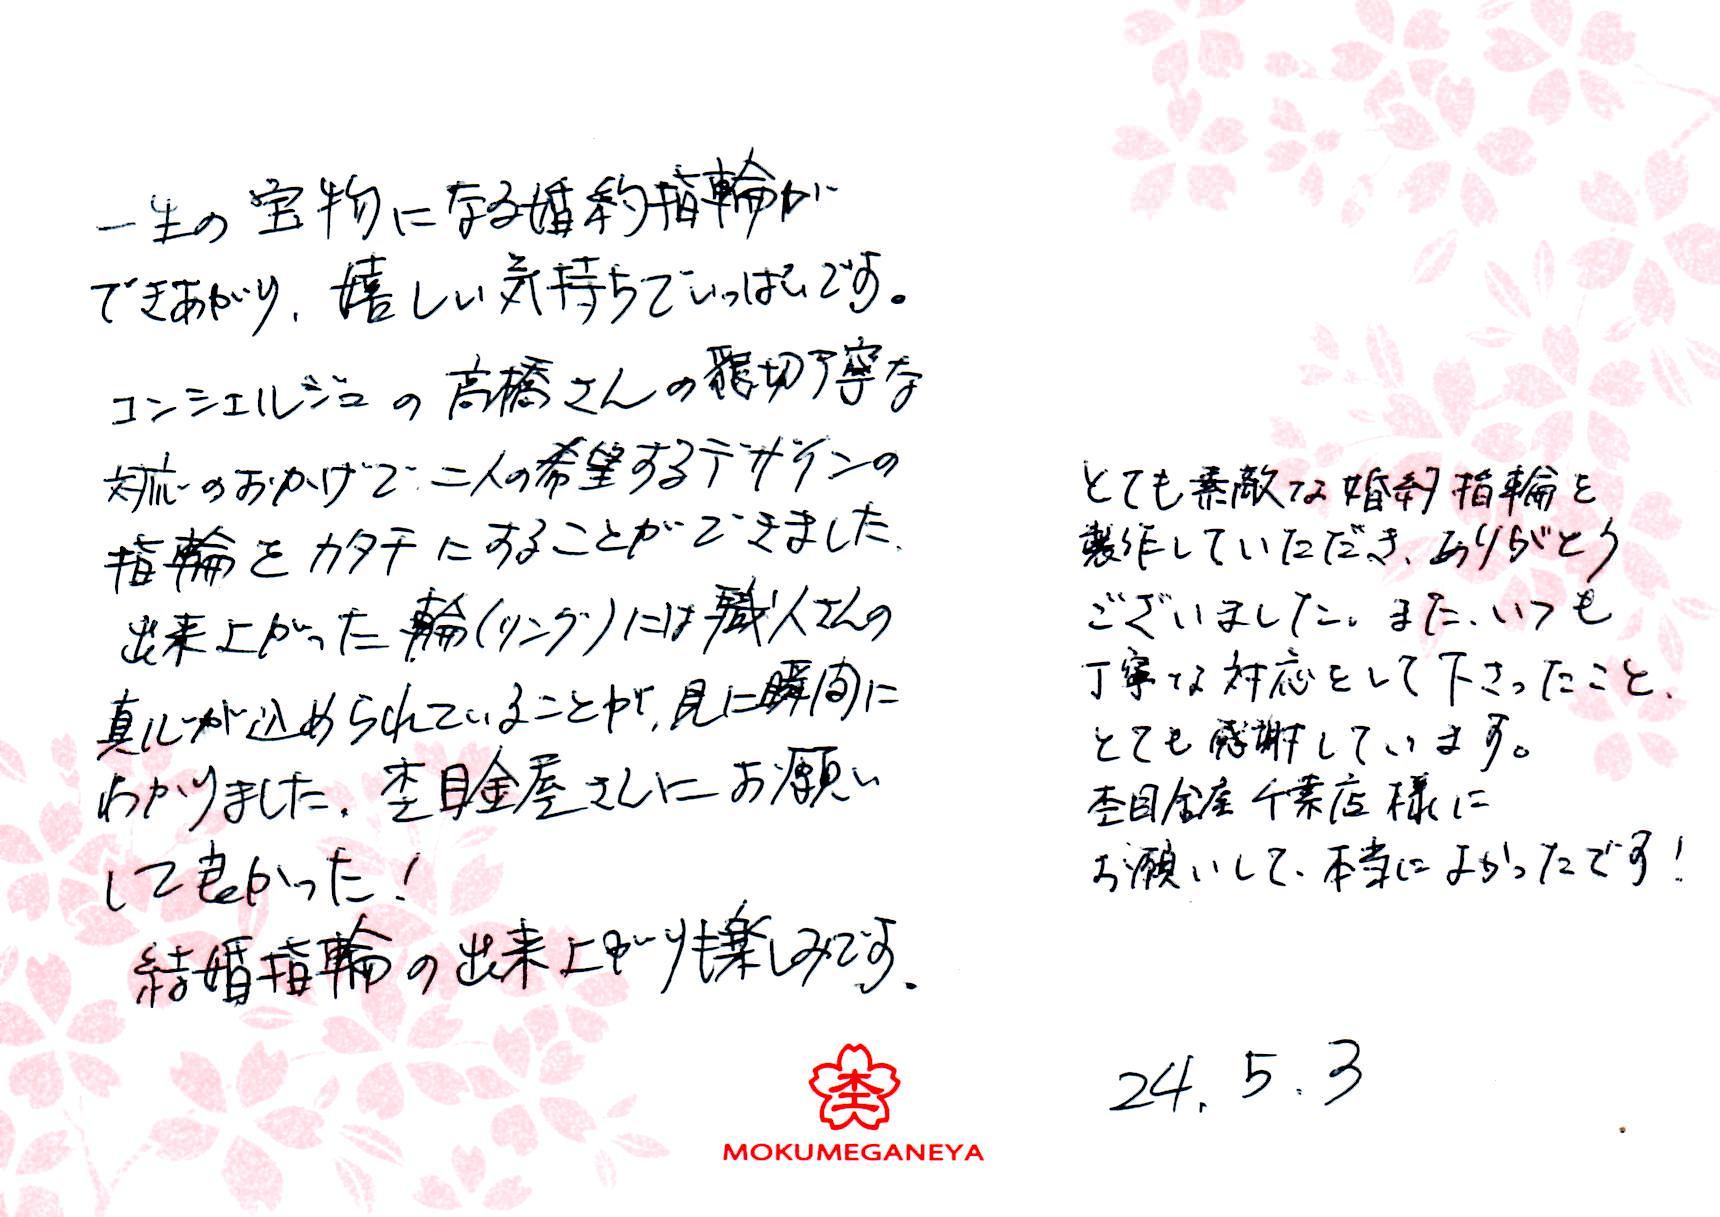 一生の宝物になる婚約指輪が
できあがり、嬉しい気持ちでいっぱいです。
コンシェルジュの高橋さんの懇切丁寧な
対応のおかげで二人の希望するデザインの
指輪をカタチにすることができました。
出来上がった輪(リング)には職人さんの
真心が込められていることが、見た瞬間に
わかりました。杢目金屋さんにお願い
して良かった!
結婚指輪の出来上がりも楽しみです。
とても素敵な婚約指輪を
製作していただき、ありがとう
ございました。また、いつも
丁寧な対応をして下さったこと、
とても感謝しています。
杢目金屋千葉店様に
お願いして、本当によかったです!
24.5.3
杢
MOKUMEGANEYA